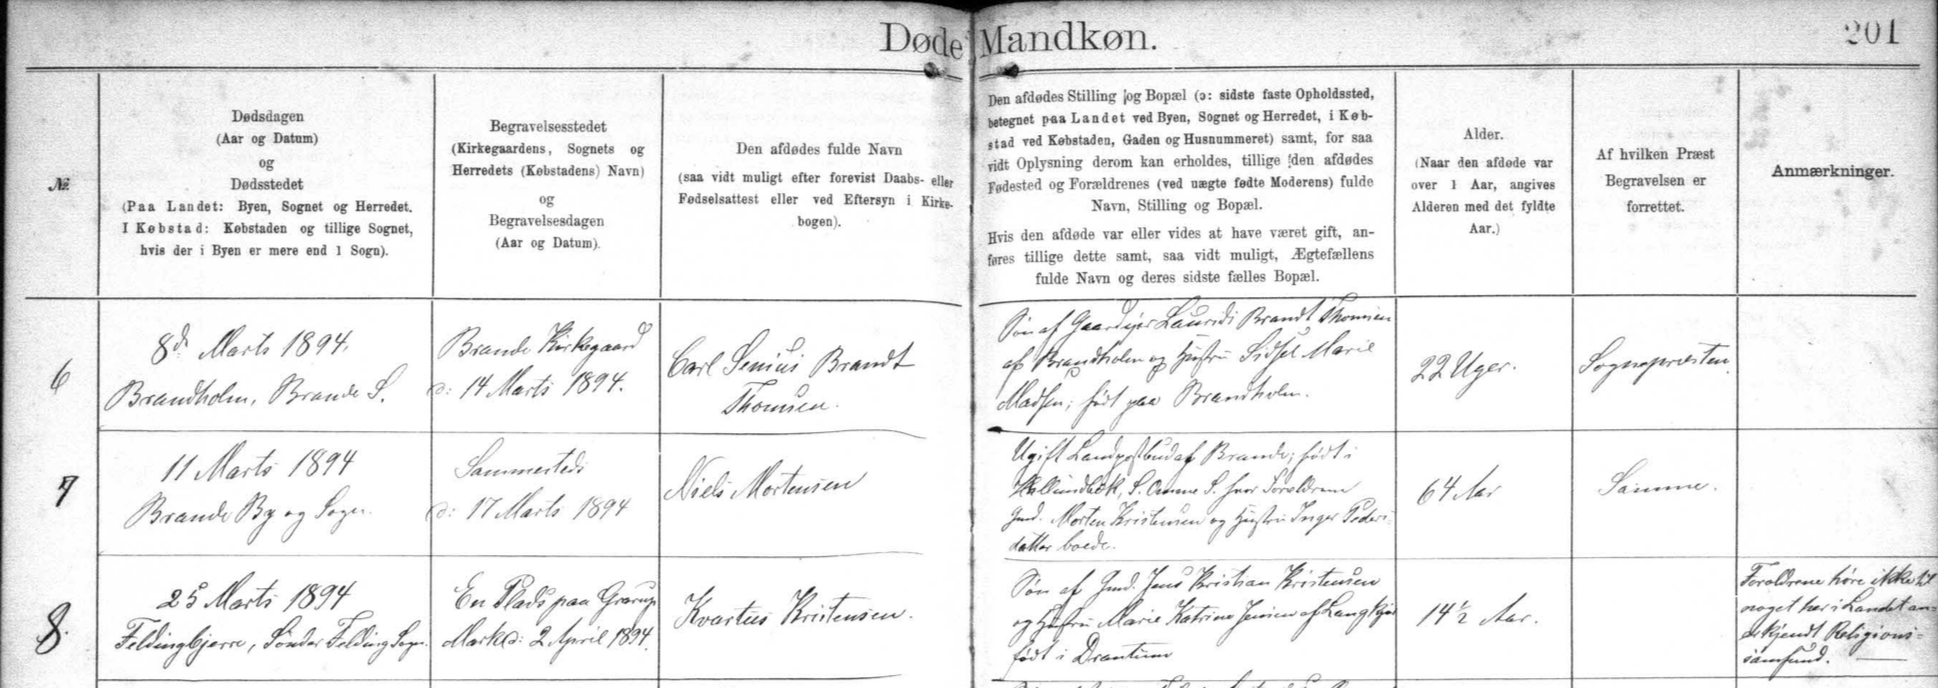 Døde Mandkøn.
201
№
Dødsdagen
(Aar og Datum)
og
Dødsstedet
(Paa Landet: Byen, Sognet og Herredet.
I Købstad: Købstaden og tillige Sognet,
hvis der i Byen er mere end 1 Sogn).
Begravelsesstedet
(Kirkegaardens, Sognets og
Herredets (Købstadens) Navn)
og
Begravelsesdagen
(Aar og Datum).
Den afdødes fulde Navn
(saa vidt muligt efter forevist Daabs- eller
Fødselsattest eller ved Eftersyn i Kirke-
bogen).
Den afdødes Stilling og Bopæl (ɔ: sidste faste Opholdssted,
betegnet paa Landet ved Byen, Sognet og Herredet, i Køb-
stad ved Købstaden, Gaden og Husnummeret) samt, for saa
vidt Oplysning derom kan erholdes, tillige den afdødes
Fødested og Forældrenes (ved uægte fødte Moderens) fulde
Navn, Stilling og Bopæl.
Hvis den afdøde var eller vides at have været gift, an-
føres tillige dette samt, saa vidt muligt, Ægtefællens
fulde Navn og deres sidste fælles Bopæl.
Alder.
(Naar den afdøde var
over 1 Aar, angives
Alderen med det fyldte
Aar.)
Af hvilken Præst
Begravelsen er
forrettet.
Anmærkninger.
6
8de Marts 1894.
Brandholm, Brande S.
Brande Kirkegaard
d: 14 Marts 1894.
Carl Senius Brandt
Thomsen.
Søn af Gaardejer Laurids Brandt Thomsen
af Brandholm og Hustru Sidsel Marie
Madsen; født paa Brandholm.
22 Uger.
Sognepræsten.
7
11 Marts 1894
Brande By og Sogn.
Sammesteds
d: 17 Marts 1894
Niels Mortensen
Ugift Landpostbud af Brande; født i
S. Omme S. hvor Forældrene
Gmd. Morten Kristensen og Hustru Inger Peders-
datter boede.
64 Aar
Samme.
8.
25 Marts 1894
Feldingbjerre, Sønder Felding Sogn.
En Plads paa Grarup
Mark d: 2 April 1894.
Kvartus Kristensen.
Søn af Gmd. Jens Kristian Kristensen
og Hustru Marie Katrine Jensen af Langkjær
født i Drantum
14½ Aar.
Forældrene høre ikke til
noget her i Landet an-
erkjendt Religions-
samfund.